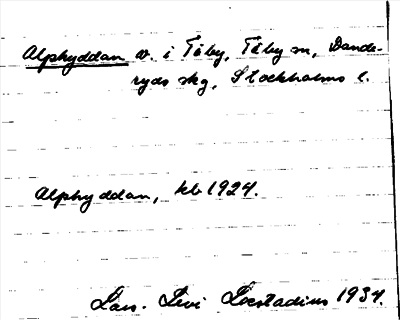 Alphyddan v. i Täby, Täby sn, Dande-
ryds skg, Stockholms l.
Alphyddan, kb 1924.
Lars-Levi Læstadius 1934.